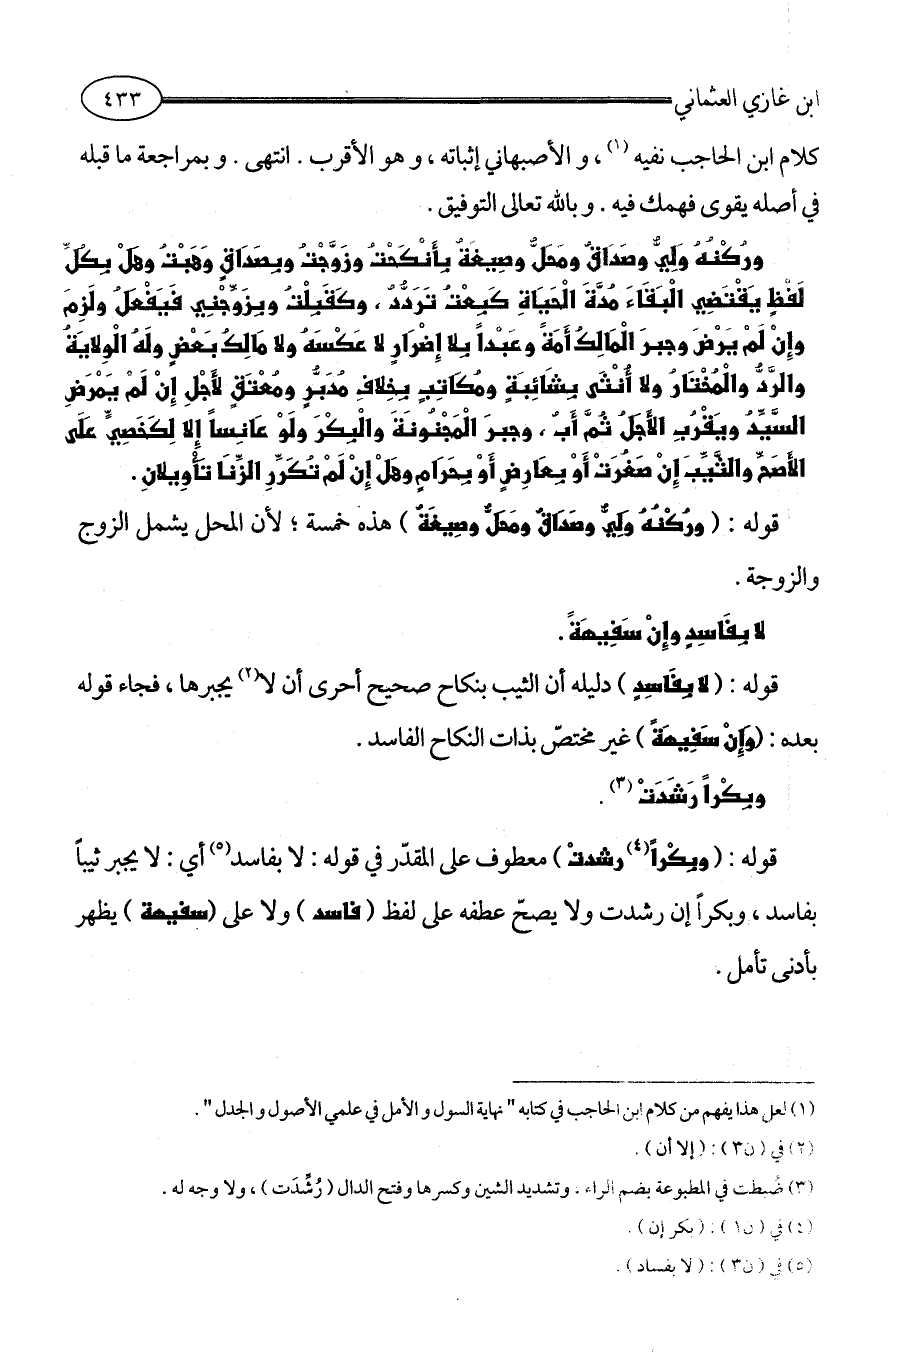 ابن غازي العثماني ٤٣٣
كلام ابن الحاجب نفيه (١) ، و الأصبهاني إثباته ، و هو الأقرب . انتهى . و بمراجعة ما قبله
في أصله يقوى فهمك فيه . و بالله تعالى التوفيق .
ورُكْنُهُ وليٌّ وصَدَاقٌ ومَحَلٌّ وصِيغَةٌ بِأَنْكَحْتُ وزَوَّجْتُ وبِصَدَاقٍ وَهَبْتُ وهَلْ بِكُلِّ
لَفْظٍ يَقْتَضِي الْبَقَاءَ مُدَّةَ الْحَيَاةِ كَبِعْتُ تَرَدُّدٌ ، وكَقَبِلْتُ وبِزَوِّجْنِي فَيَفْعَلُ ولَزِمَ
وإِنْ لَمْ يَرْضَ وجبرَ الْمَالِكُ أمَةً وعَبْداً بِلا إِضْرَارٍ لا عَكْسَهُ ولا مالِكُ بَعْضٍ ولَهُ الْوِلايَةُ
والرَّدُّ والْمُخْتَارُ ولا أُنْثَى بِشَائِبَةٍ ومُكَاتَبٍ بِخِلافِ مُدَبَّرٍ ومُعْتَقٍ لأَجَلٍ إِنْ لَمْ يَمْرَضِ
السَّيِّدُ ويَقْرُبِ الأَجَلُ ثُمَّ أَبٌ ، وجبرَ الْمَجْنُونَةَ والْبِكْرَ ولَوْ عَانِساً إِلا لِكَخَصِيٍّ عَلَى
الأَصَحِّ والثَّيِّبَ إِنْ صَغُرَتْ أَوْ بِعَارِضٍ أَوْ بِحَرَامٍ وهَلْ إِنْ لَمْ تُكَرِّرِ الزِّنَا تَأْوِيلانِ .
قوله : ( ورُكْنُهُ وليٌّ وصَدَاقٌ ومَحَلٌّ وصِيغَةٌ ) هذه خمسة ؛ لأن المحل يشمل الزوج
والزوجة .
لا بِفَاسِدٍ وإِنْ سَفِيهَةً .
قوله : ( لا بِفَاسِدٍ ) دليله أن الثيب بنكاح صحيح أحرى أن لا(٢) يجبرها ، فجاء قوله
بعده : (وَإِنْ سَفِيهَةً ) غير مختصّ بذات النكاح الفاسد .
وبِكْراً رَشَدَتْ (٣) .
قوله : ( وبِكْراً(٤) رشدتْ ) معطوف على المقدّر في قوله : لا بفاسد(٥) أي : لا يجبر ثيباً
بفاسد ، وبكراً إن رشدت ولا يصحّ عطفه على لفظ ( فاسد ) ولا على (سفيهة ) يظهر
بأدنى تأمل .
(١) لعل هذا يفهم من كلام ابن الحاجب في كتابه " نهاية السول و الأمل في علمي الأصول و الجدل " .
(٢) في (ن٣) : (إلا أن) .
(٣) ضُبطت في المطبوعة بضم الراء . وتشديد الشين وكسرها وفتح الدال ( رُشِّدَت ) ، ولا وجه له .
(٤) في (ن١) : (بكر إن) .
(٥) في (ن٣) : (لا بفساد) .